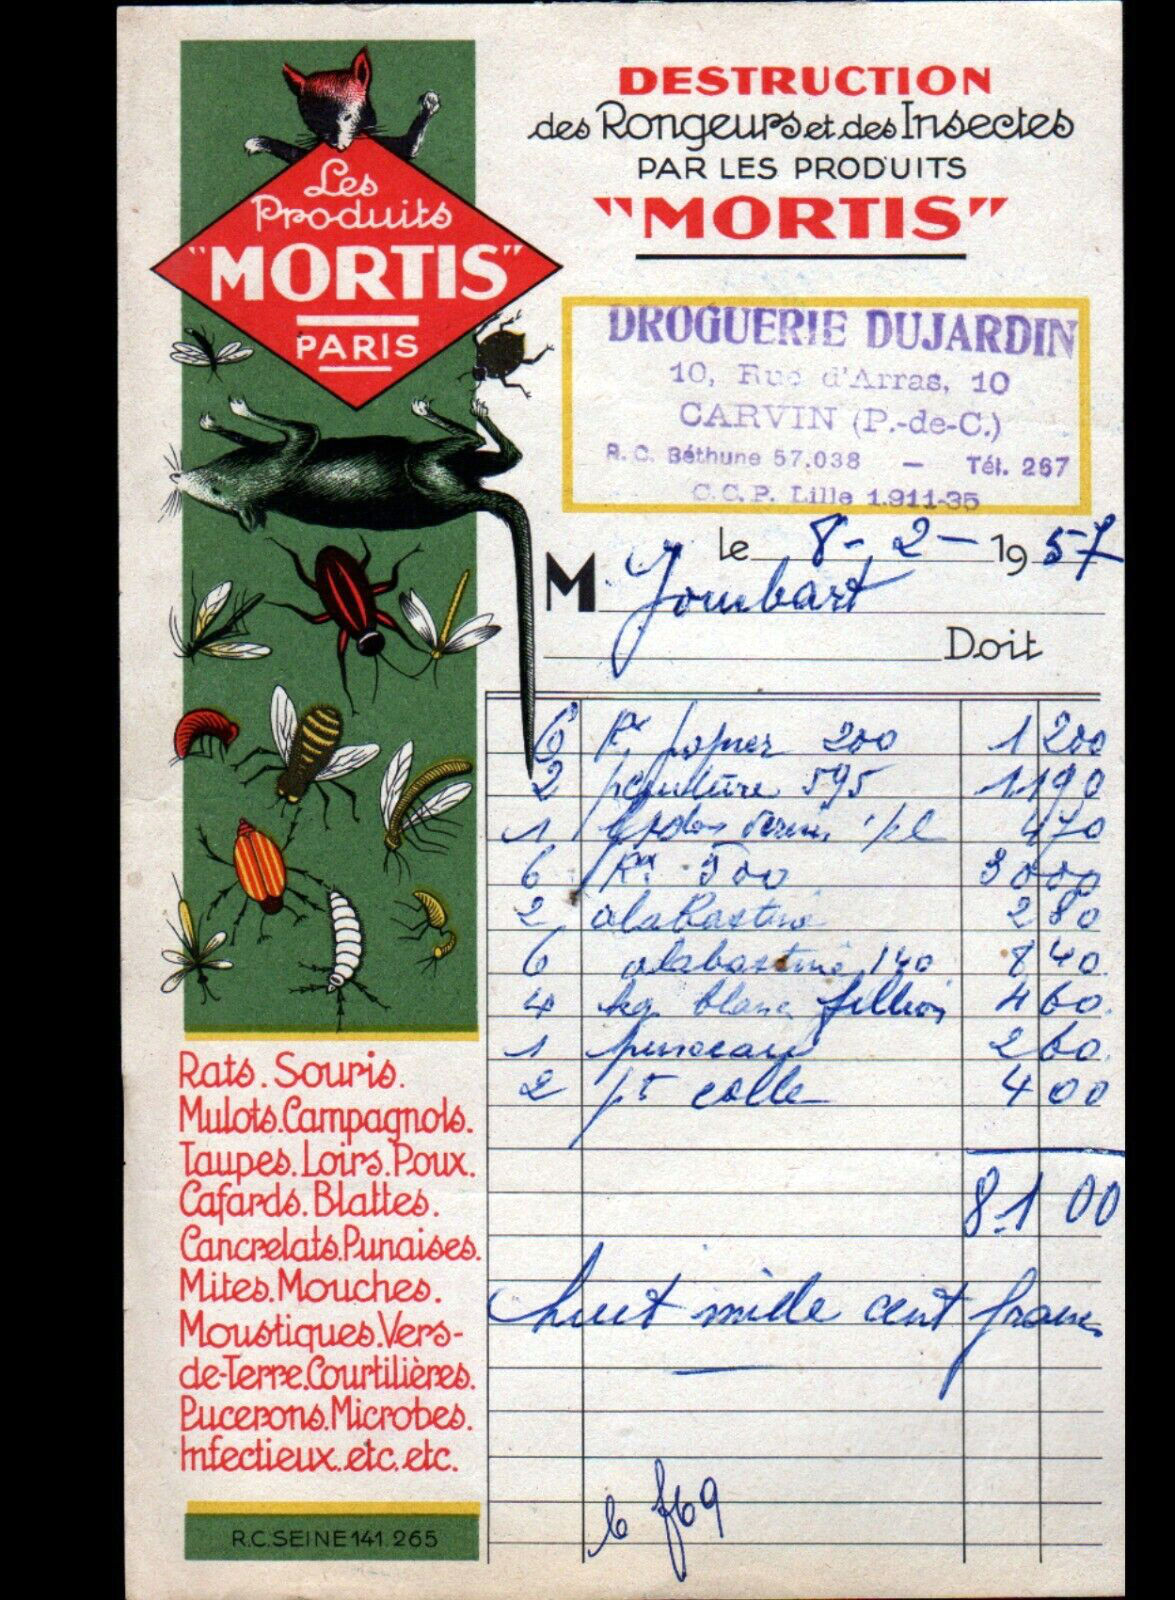 Les
Produits
"MORTIS"
PARIS
DESTRUCTION
des Rongeurs et des Insectes
PAR LES PRODUITS
"MORTIS"
DROGUERIE DUJARDIN
10, Rue d'Arras, 10
CARVIN (P.-de-C.)
R. C. Béthune 57.038 — Tél. 267
C.C.P. Lille 1.911-35
le 8-2-1957
M Jombart
Doit
6 Rx papier 200 1 200
2 peinture 595 1190
1 470
6 Rx 500 3000
2 alabastine 280
6 alabastine 140 840
4 kg blanc 460
1 260
2 pt colle 400
8.100
huit mille cent francs
Rats. Souris.
Mulots. Campagnols.
Taupes. Loirs. Poux.
Cafards. Blattes.
Cancrelats. Punaises.
Mites. Mouches.
Moustiques. Vers-
de-Terre. Courtilières.
Pucerons. Microbes.
Infectieux. etc. etc.
R.C. SEINE 141 265